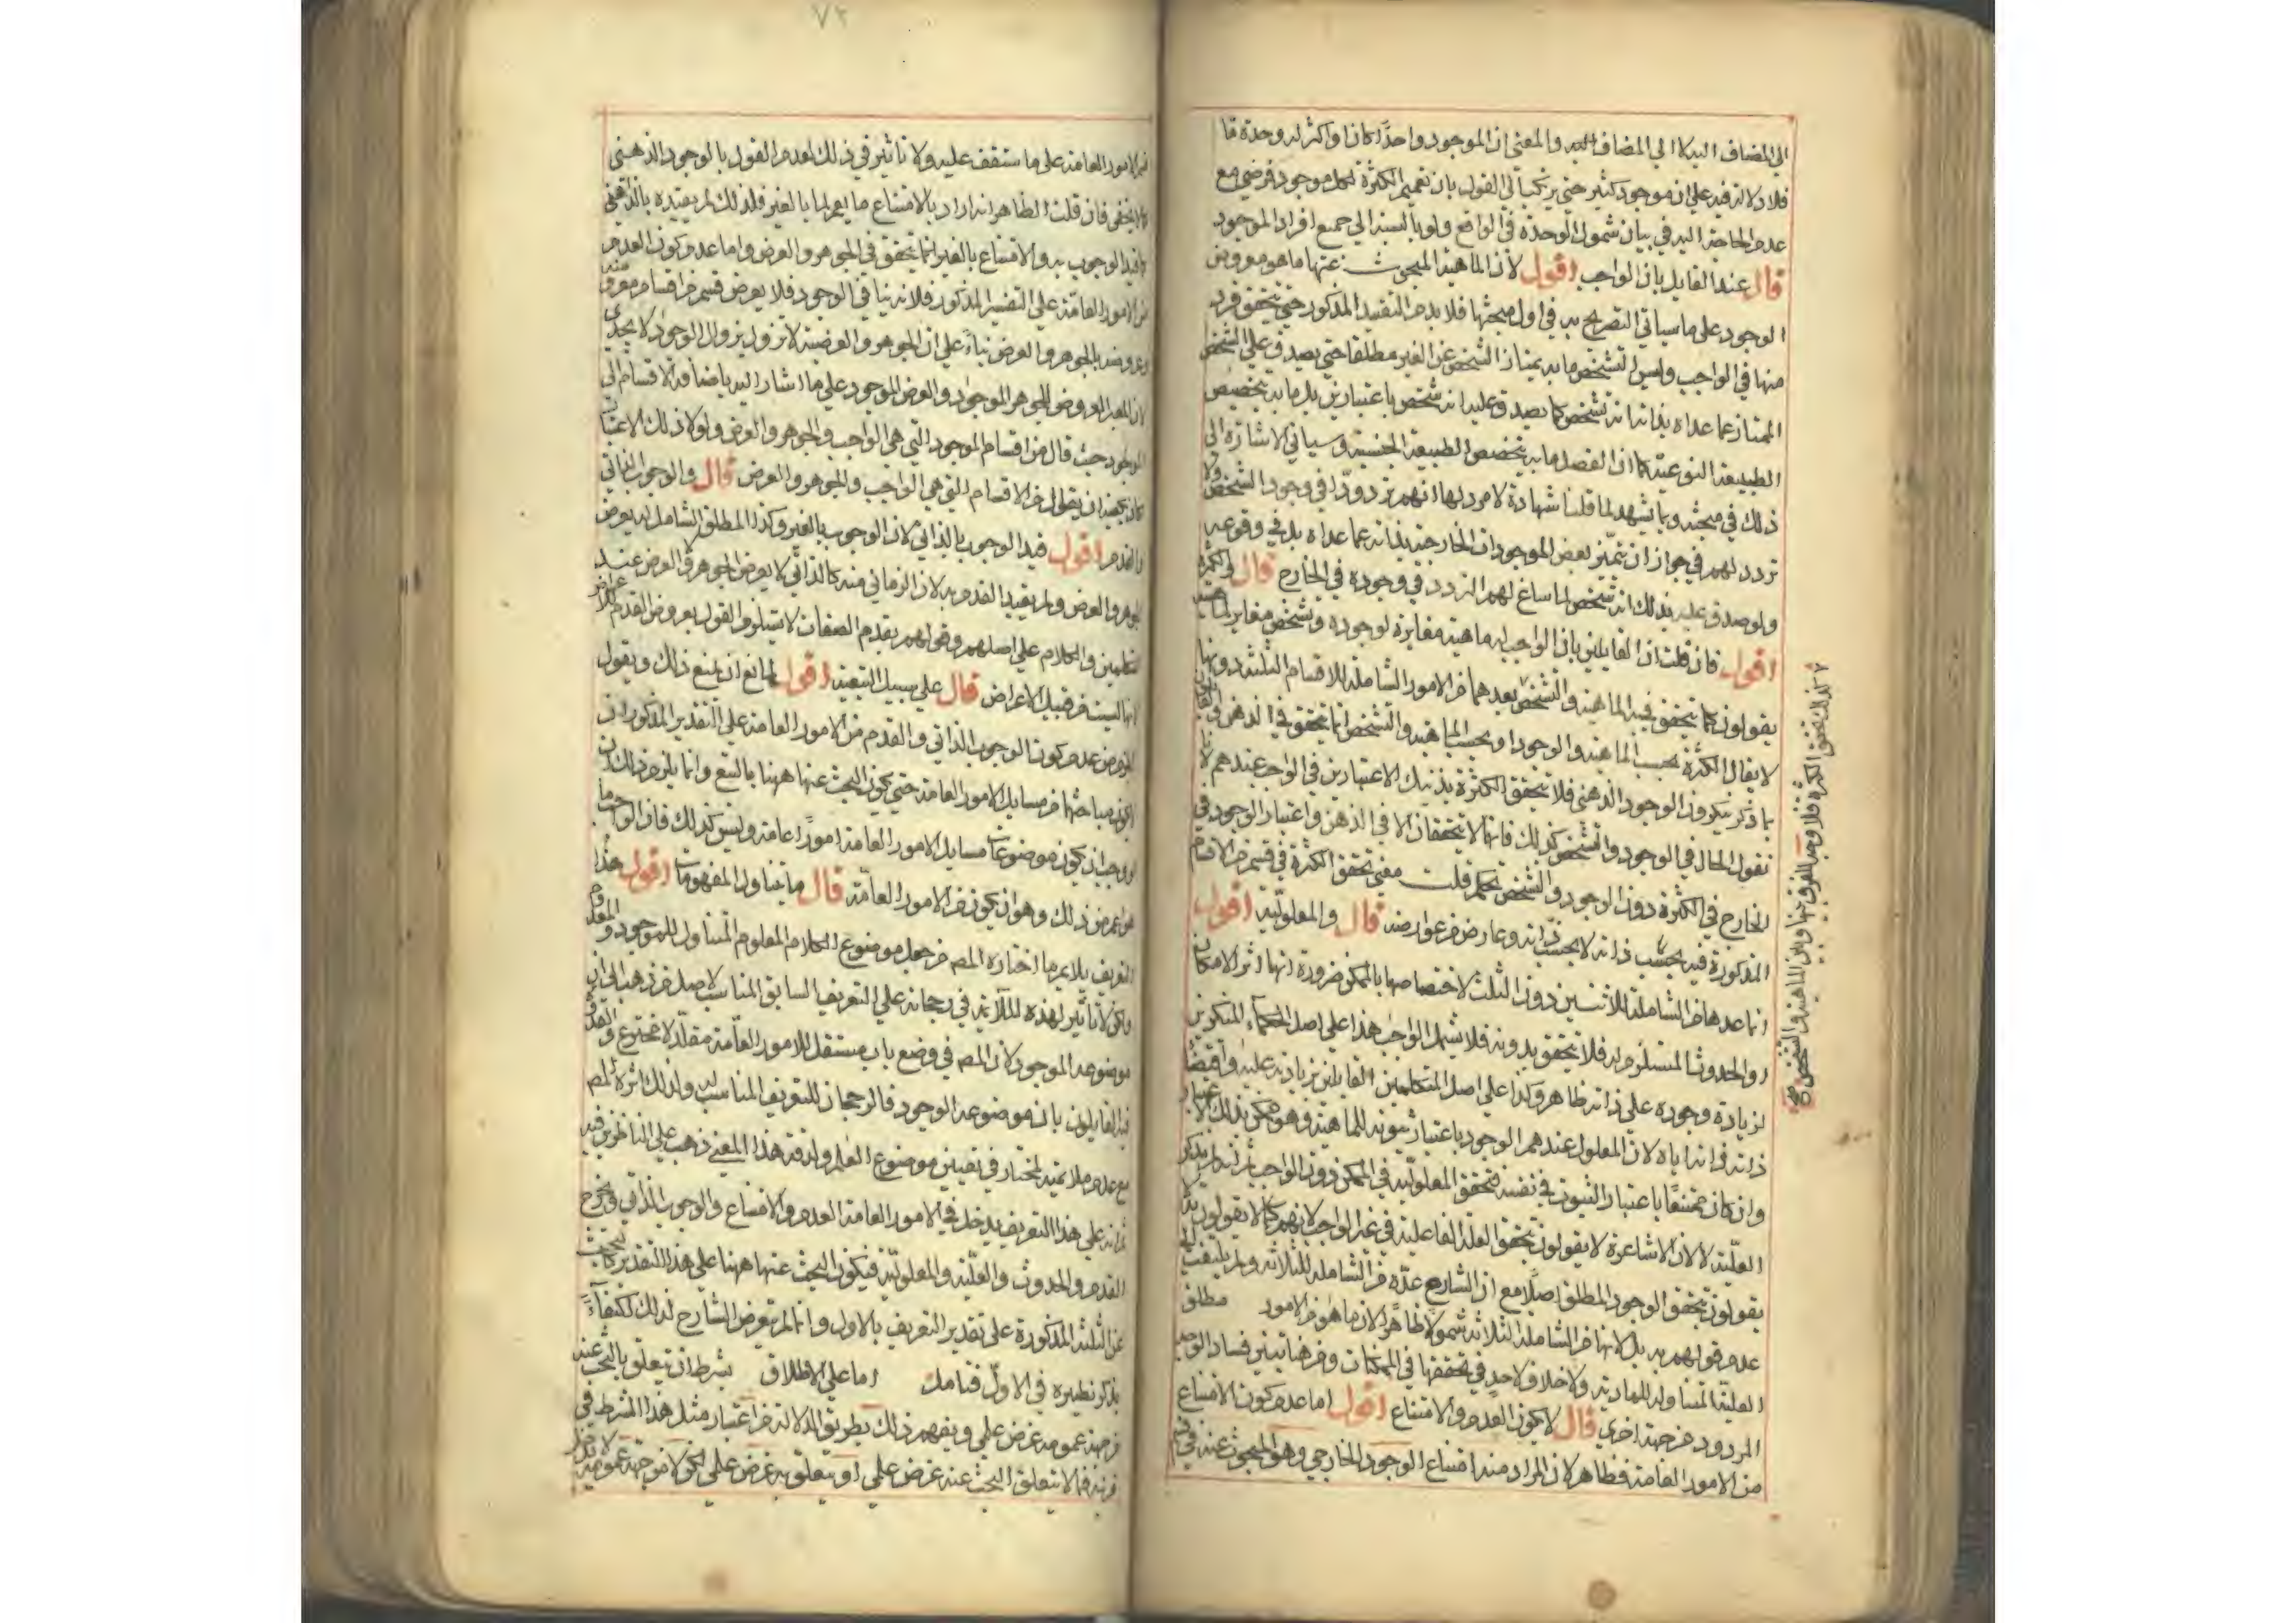 الى المضاف اليه كا الى المضاف اليه والمعنى ان الموجود واحدًا كان او اكثر له وحدة ما
فلا دلالة فيه على ان موجود كثير حتى يرتكب الى القول بان تعميم الكثرة لكل موجود فرضي مع
عدم الحاجة اليه في بيان شمول الوحدة في الواقع ولو بالنسبة الى جميع افراد الموجود
قال عند القايل بان الواجب اقول لان الماهية المبحوث عنها ما هو معروض
الوجود على ما سياتي التصريح به في اول مبحثها فلا بد من التقييد المذكور حتى يتحقق فرد
منها في الواجب وليس التشخص ما به يمتاز الشخص عن الغير مطلقا حتى يصدق على الشخص
الممتاز عما عداه بذاته انه تشخص كما يصدق عليه انه متشخص باعتبارين بل ما به يتخصص
الطبيعة النوعية كما ان الفصل ما به يتخصص الطبيعة الجنسية وسياتي الاشارة الى
ذلك في مبحثه ومما يشهد لما قلنا شهادة لا مرد لها انهم ترددوا في وجود التشخص ولا
تردد لهم في جواز ان يتميز بعض الموجودات الخارجية بذاته عما عداه بل في وقوعه
ولو صدق عليه بذلك انه تشخص لما ساغ لهم التردد في وجوده في الخارج قال والكثرة
اقول فان قلت ان القايلين بان الواجب له ماهية مغايرة لوجوده وتشخص مغاير لماهيته
يقولون كما يتحقق فيه الماهية والتشخص بعدهما من الامور الشاملة للاقسام الثلثة دونها
لا يقال الكثرة بحسب الماهية والوجود او بحسب الماهية والتشخص انما تتحقق في الذهن
ما ذكر ينكرون الوجود الذهني فلا تتحقق الكثرة بذينك الاعتبارين في الواجب عندهم لانا
نقول الحال في الوجود والتشخص كذلك فانهما لا يتحققان الا في الذهن واعتبار الوجود في
الخارج في الكثرة دون الوجود والتشخص تحكم قلت معنى تحقق الكثرة في قسم من الاقسام
المذكورة فيه بحسب ذاته لا بحسب ذاته وعارض من عوارضه قال والمعلولية اقول
انما عدها من الشاملة للاثنين دون الثلث لاختصاصها بالممكن ضرورة انها اثر الامكان
او الحدوث المستلزم له فلا تتحقق بدونه فلا يشمل الواجب هذا على اصل الحكماء المنكرين
لزيادة وجوده على ذاته ظاهر وكذا على اصل المتكلمين القايلين بزيادته عليه واقتضاء
ذاته اياه لان المعلول عندهم الوجود باعتبار ثبوته للماهية وهو ممكن بذلك الاعتبار
وان كان ممتنعًا باعتبار الثبوت في نفسه فتحقق المعلولية في الممكن دون الواجب ثم انه لم يذكر
العلية لا لان الاشاعرة لا يقولون بتحقق العلة الفاعلية في غير الواجب لانهم كما لا يقولون بذلك
يقولون بتحقق الوجود المطلق اصلا مع ان الشارح عده من الشاملة للثلاثة ولم يلتفت الى
عدم قولهم به بل لانها من الشاملة لثلاثة شمولًا ظاهرًا لان ما هو من الامور مطلق
العلية المتناولة للمادية ولا خلاف لاحد في تحققها في الممكنات ومن هنا تبين فساد الوجه
المردود من جهة اخرى قال لا يكون العدم والامتناع اقول اما عدم كون الامتناع
من الامور العامة فظاهر لان المراد منه امتناع الوجود الخارجي وهو المبحوث عنه في قسم
كذلك تحقق الكثرة فلا وجه للفرق بينها وبين الماهية والتشخص صح
٧٢
من الامور العامة على ما ستقف عليه ولا تاثير في ذلك لعدم القول بالوجود الذهني
كما لا يخفى فان قلت الظاهر انه اراد بالامتناع ما يعم لما بالغير فلذلك لم يقيده بالذاتي
كما قيد الوجوب به والامتناع بالغير انما يتحقق في الجوهر والعرض واما عدم كون العدم
من الامور العامة على التفسير المذكور فلانه ينافي الوجود فلا يعرض قسم من اقسام معروضه
وعروضه بالجوهر والعرض بناءً على ان الجوهر والعرضية لا تزول بزوال الوجود لا يجدي
لان المعتبر العروض للجوهر الموجود والعرض الموجود على ما اشار اليه باضافة الاقسام الى
الموجود حيث قال من اقسام الموجود التي هي الواجب والجوهر والعرض ولولا ذلك الاعتبار
كان يكفيه ان يقول من الاقسام التي هي الواجب والجوهر والعرض قال والوجوب الذاتي
والقدم اقول قيد الوجوب بالذاتي لان الوجوب بالغير وكذا المطلق الشامل له يعرض
الجوهر والعرض ولم يقيد القدم به لان الزماني منه كالذاتي لا يعرض الجوهر والعرض عند
المتكلمين والكلام على اصلهم وقولهم بقدم الصفات لا يستلزم القول بعروض القدم للاعراض
انها ليست من قبيل الاعراض قال على سبيل التبعية اقول لمانع ان يمنع ذلك ويقول
المفروض عدم كون الوجوب الذاتي والقدم من الامور العامة على التقدير المذكور ان
يكون مباحثها من مسايل الامور العامة حتى يكون البحث عنها ههنا بالتبع وانما يلزم ذلك ان
لو وجب ان يكون موضوعات مسايل الامور العامة امورًا عامة وليس كذلك فان الواجب ما
هو اعم من ذلك وهو ان يكون من الامور العامة قال ما يتناول المفهومات اقول هذا
التعريف يلايم ما اختاره المص من جعل موضوع الكلام المعلوم المتناول للموجود والمعدوم
ولكن لا تاثير لهذه الملائمة في رجحانه على التعريف السابق المناسب لاصل من ذهب الى ان
موضوعه الموجود لان المص في وضع باب مستقل للامور العامة مقلد لا مخترع والقدوة
فيه القايلون بان موضوعه الوجود فالرجحان للتعريف المناسب له ولذلك اثره المص
مع عدم ملائمته لمختاره في تعيين موضوع العلم ولدقة هذا المعنى ذهب على الناظرين فيه
ثم انه على هذا التعريف يدخل في الامور العامة العدم والامتناع والوجوب الذاتي ويخرج
القدم والحدوث والعلية والمعلولية فيكون البحث عنها ههنا على هذا التقدير كالبحث
عن الثلثة المذكورة على تقدير التعريف بالاول وانما لم يتعرض الشارح لذلك اكتفاءً
بذكر نظيره في الاول فتامل اما على الاطلاق بشرط ان يتعلق بالبحث عنه
من جهة عمومه غرض علمي ويفهم ذلك بطريق الدلالة من اعتبار مثل هذا الشرط في
قرينه فما لا يتعلق البحث عنه غرض علمي او يتعلق به غرض علمي لكن لا من جهة عمومه لا يدخل